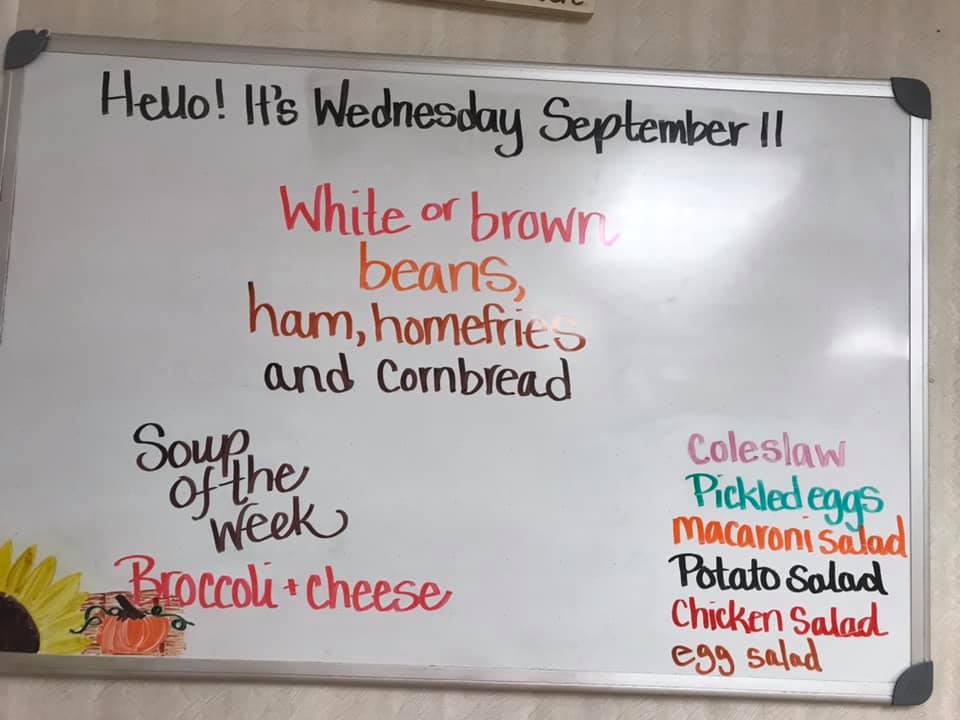 Hello! It's Wednesday September 11
White or brown
beans,
ham, homefries
and Cornbread
Soup
of the
Week
Broccoli + cheese
Coleslaw
Pickled eggs
Macaroni salad
Potato Salad
Chicken Salad
egg salad